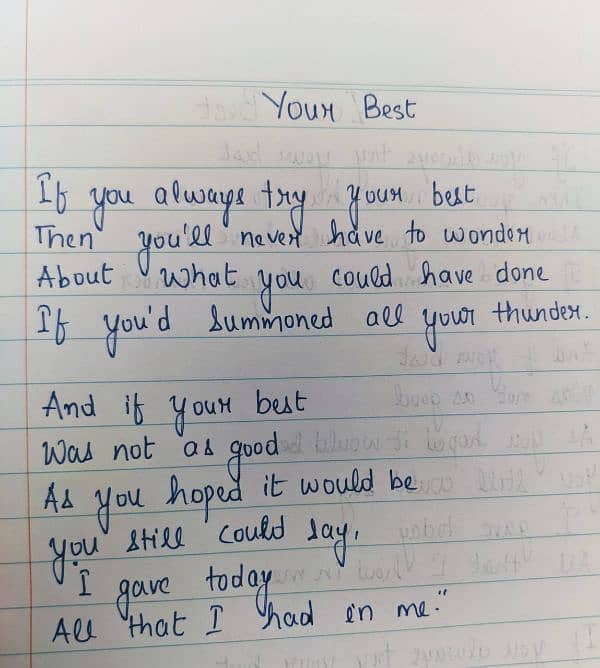 Your Best
If you always try your best
Then you'll never have to wonder
About what you could have done
If you'd summoned all your thunder.
And if your best
Was not as good
As you hoped it would be
you still could say,
"I gave today
All that I had in me."